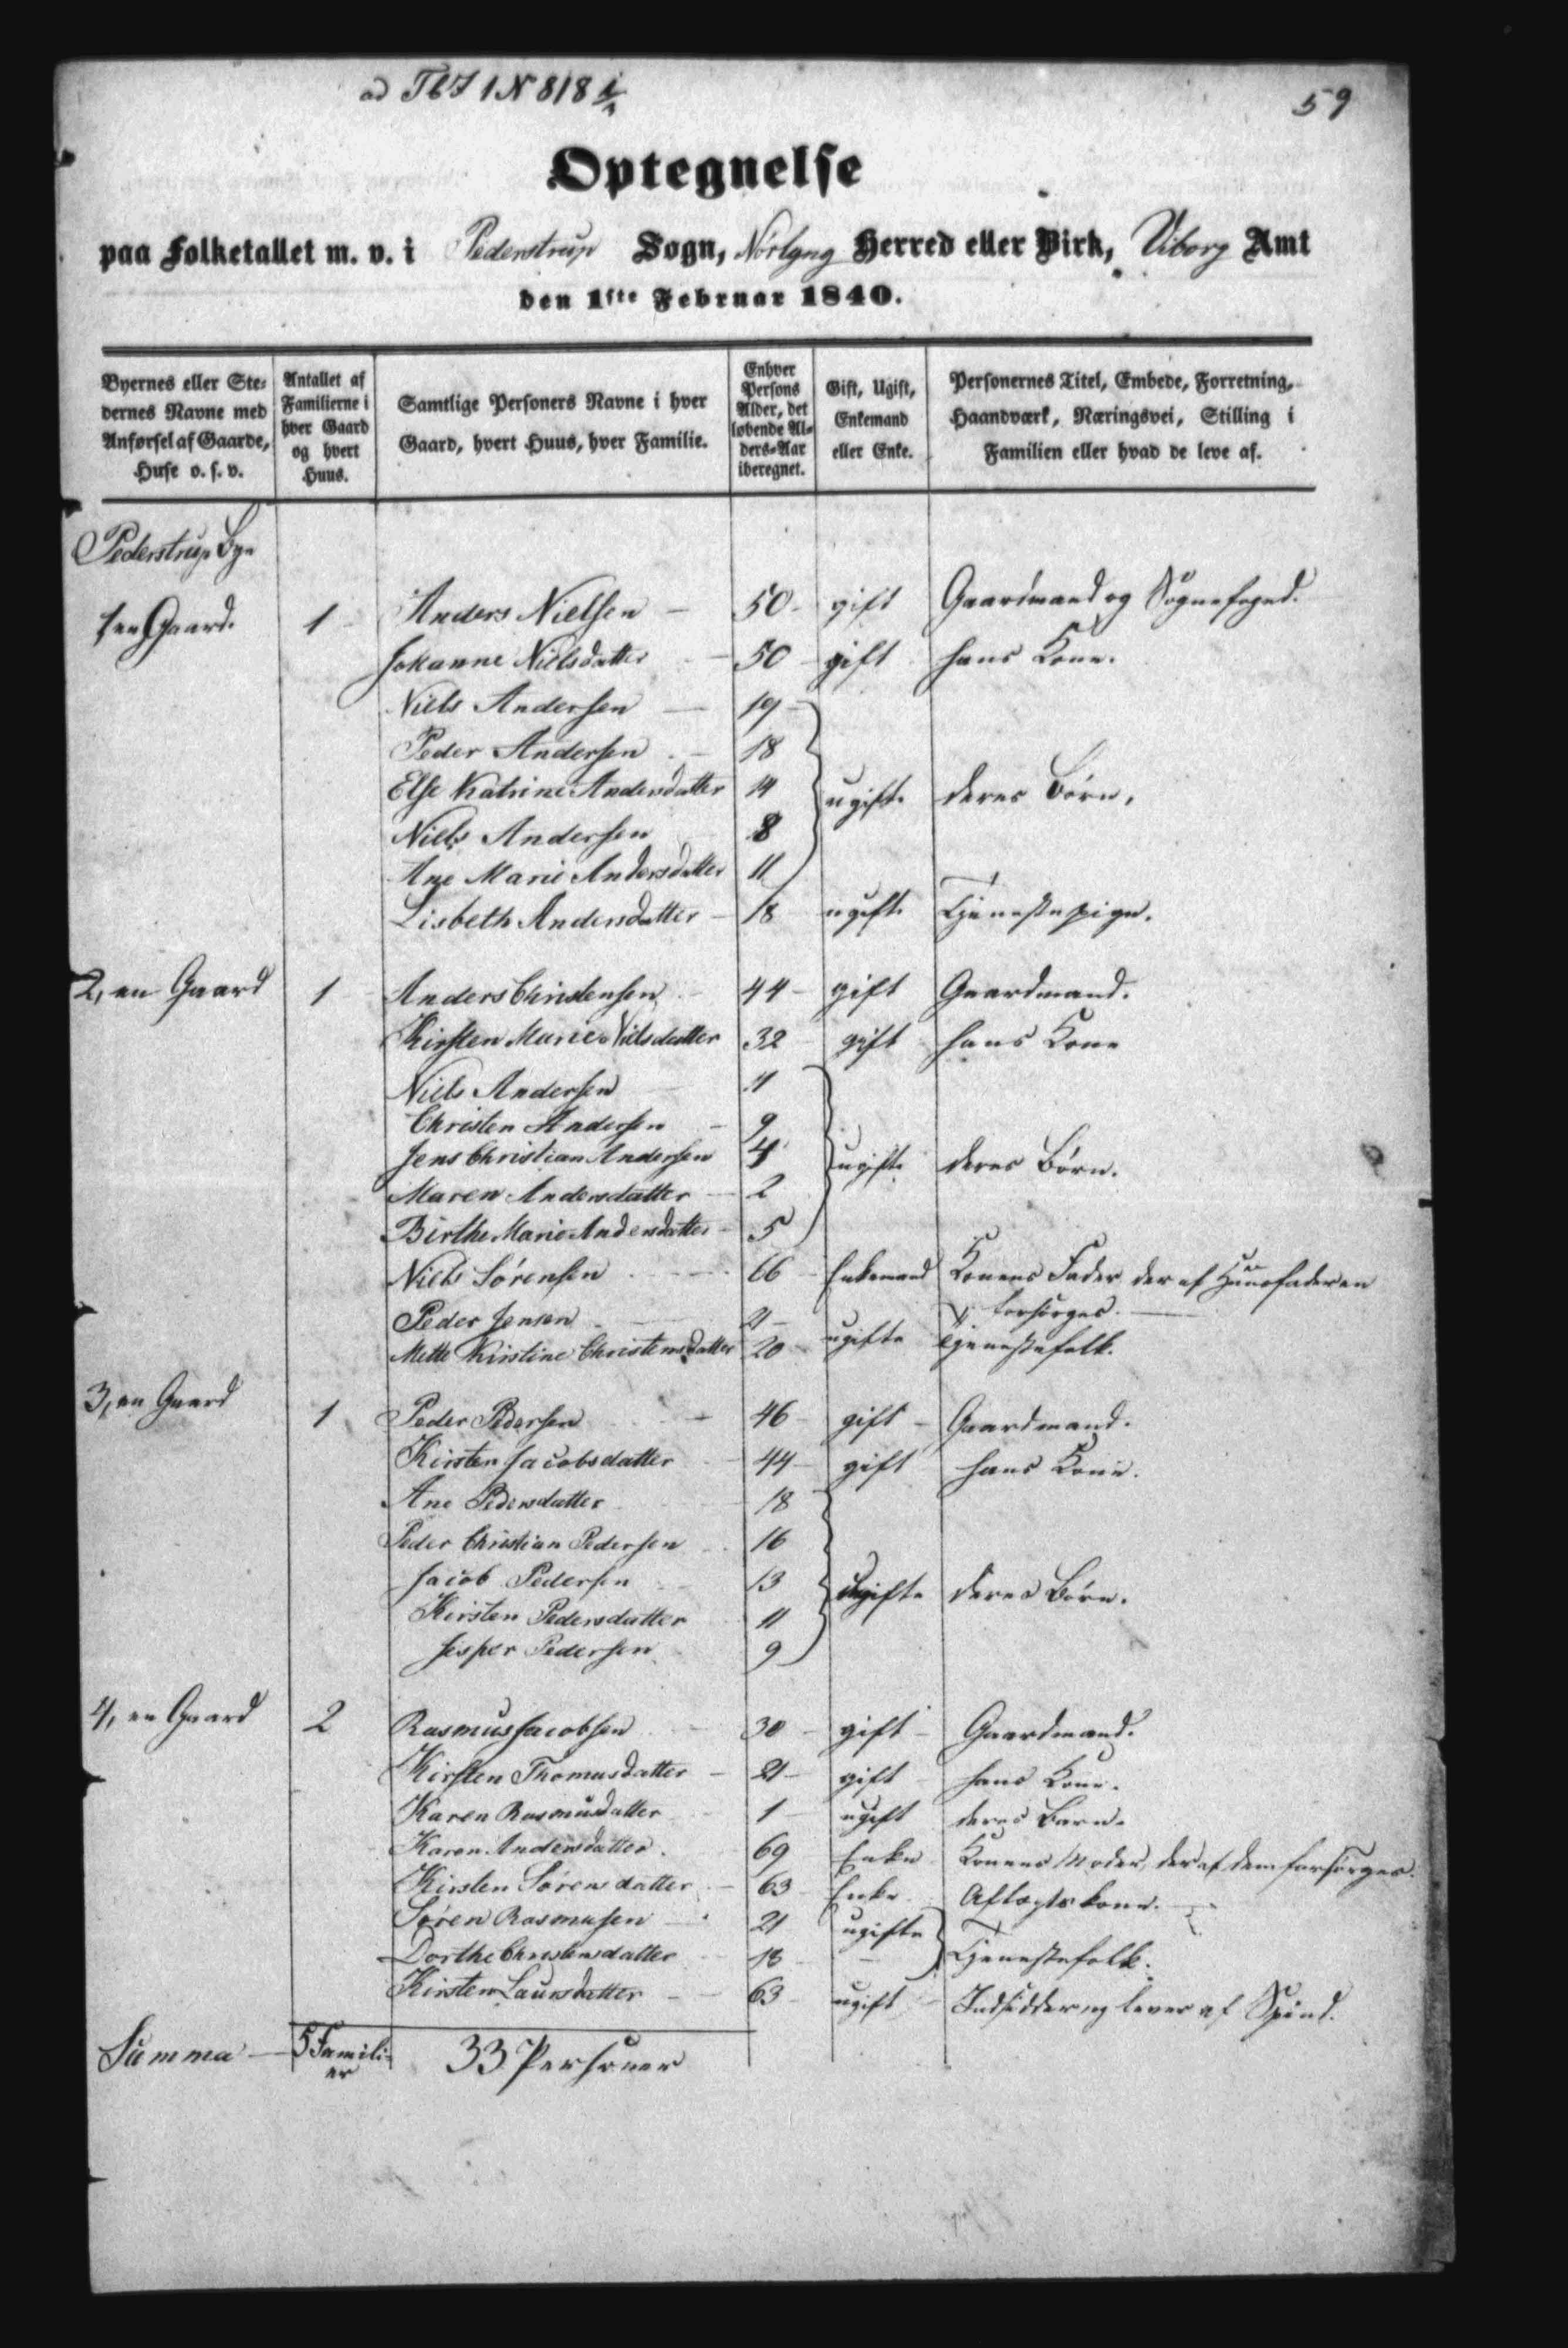 ad Tb J 1 N 818
59
Optegnelse
paa Folketallet m. v. i Pederstrup Sogn, Nørlyng Herred eller Birk, Viborg Amt
den 1ste Februar 1840.
Byernes eller Stedernes Navne med Anførsel af Gaarde, Huse o. s. v. | Antallet af Familierne i hver Gaard og hvert Huus. | Samtlige Personers Navne i hver Gaard, hvert Huus, hver Familie. | Enhver Persons Alder, det løbende Alders-Aar iberegnet. | Gift, Ugift, Enkemand eller Enke. | Personernes Titel, Embede, Forretning, Haandværk, Næringsvei, Stilling i Familien eller hvad de leve af.
Pederstrup Bye
1 en Gaard. 1 Anders Nielsen 50 gift Gaardmand og Sognefoged.
Johanne Nielsdatter 50 gift hans Kone.
Niels Andersen 19
Peder Andersen 18
Else Katrine Andersdatter 14 ugifte deres Børn,
Niels Andersen 8
Ane Marie Andersdatter 11
Lisbeth Andersdatter 18 ugift Tjenestepige.
2, en Gaard 1 Anders Christensen 44 gift Gaardmand.
Kirsten Marie Nielsdatter 32 gift hans Kone
Niels Andersen 11
Christen Andersen 9
Jens Christian Andersen 4 ugifte deres Børn.
Maren Andersdatter 2
Birthe Marie Andersdatter 5
Niels Sørensen 66 Enkemand Konens Fader der af Huusfaderen
forsørges.
Peder Jensen 21
Mette Kirstine Christensdatter 20 ugifte Tjenestefolk.
3, en Gaard 1 Peder Pedersen 46 gift Gaardmand.
Kirsten Jacobsdatter 44 gift hans Kone.
Ane Pedersdatter 18
Peder Christian Pedersen 16
Jacob Pedersen 13 Ugifte deres Børn.
Kirsten Pedersdatter 11
Jesper Pedersen 9
4, en Gaard 2 Rasmus Jacobsen 30 gift Gaardmand.
Kirsten Thomasdatter 21 gift hans Kone.
Karen Rasmusdatter 1 ugift deres Barn.
Karen Andersdatter 69 Enke Konens Moder, der af dem forsørges.
Kirsten Sørensdatter 63 Enke Aftægtskone.
Søren Rasmusen 21 ugifte
Dorthe Christensdatter 18 Tjenestefolk.
Kirsten Laursdatter 63 ugift Indsidder og lever af Spind.
Summa 5 Familier 33 Personer